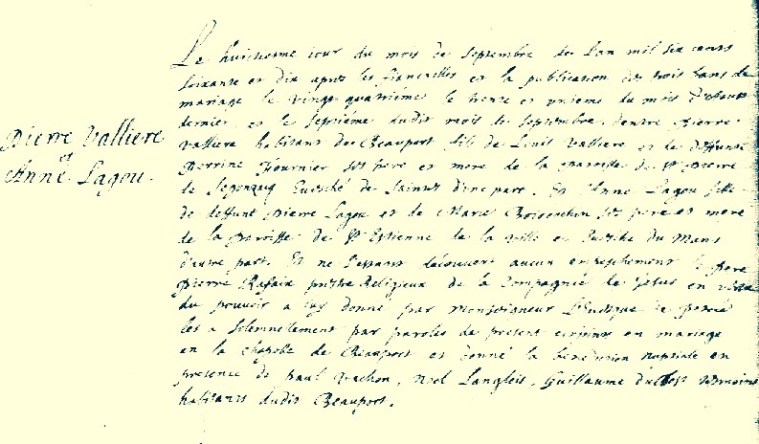 Pierre Valliere
et
Anne Lagou.
Le huictiesme jour du mois de Septembre de l'an mil six cents
soixante et dix apres les fiancailles et la publication des trois bans de
mariage le vingt quatriéme le trente et unieme du mois d'Aoust
dernier et le septiéme dudit mois de Septembre. d'entre Pierre
Valliere habitant de Beauport fils de Louis Valliere et de deffuncte
Perrine Fournier ses pere et mere de la paroisse de St Pierre
de Segonzacq Evesché de Saintes d'une part. Et Anne Lagou fille
de deffunt Pierre Lagou et de Marie Boiscochin ses pere et mere
de la Paroisse de St Estienne de la ville et Evesché du Mans
d'autre part. Et ne s'estant découvert aucun empeschement le Pere
Pierre Rafaix prestre Religieux de la Compagnie de Jesus en vertu
du pouvoir a luy donné par Monseigneur L'Evesque de Petrée
les a solemnelement par paroles de present conjoint en mariage
en la chapelle de Beauport et donné la benediction nuptiale en
presence de Paul Vachon, Noel Langlois, Guillaume tesmoins
habitants dudit Beauport.